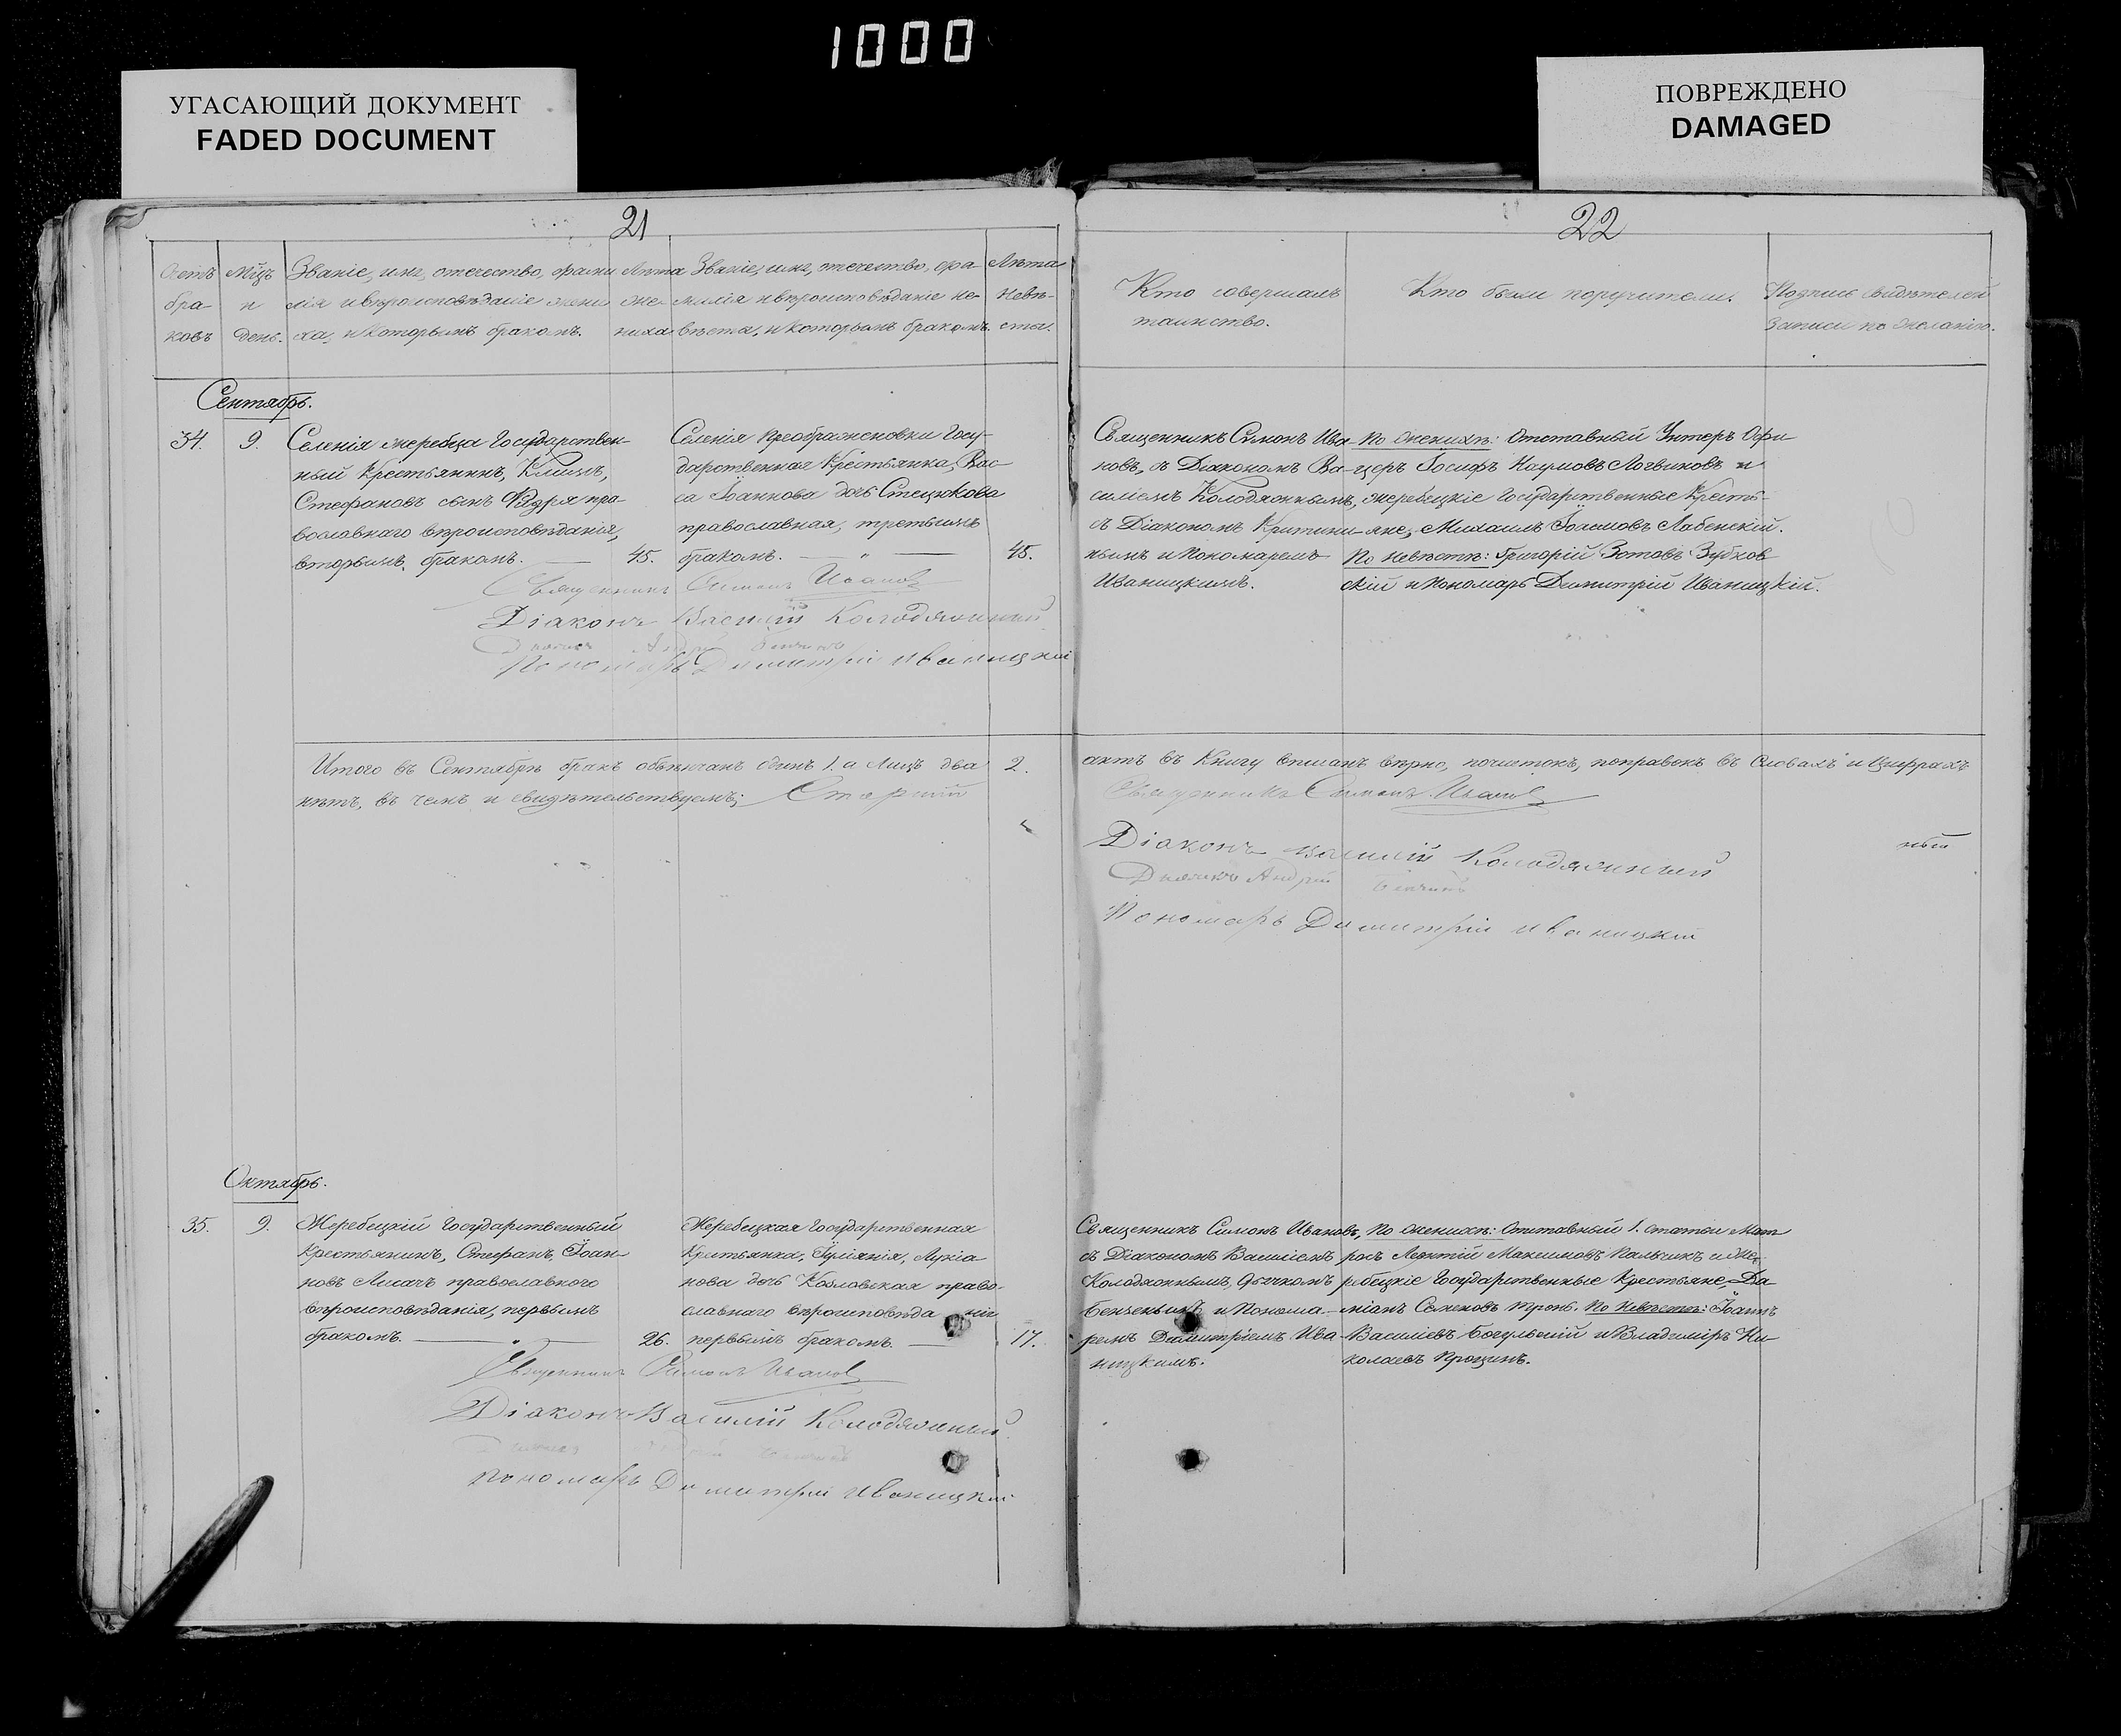 1000
УГАСАЮЩИЙ ДОКУМЕНТ
FADED DOCUMENT
ПОВРЕЖДЕНО
DAMAGED
21
Счетъ
бра-
ковъ
Мѣцъ
и
день.
Званіе, имя, отечество, фами
лія и вѣроисповѣданіе жени
ха, и которымъ бракомъ.
Лѣта
же-
ниха
Званіе, имя, отечество, фа-
милія и вѣроисповѣданіе не-
вѣсты, и которымъ бракомъ.
Лѣта
Невѣ-
сты.
Сентябрь.
34.
9.
Селенія жеребца Государствен-
ный Крестьянинъ, Климъ,
Стефановъ сынъ Федря пра-
вославнаго вѣроисповѣданія,
вторымъ бракомъ.
45.
Селенія Преображеновки Госу-
дарственная Крестьянка, Вас-
са Іоаннова дочь Стецюкова
православная, третьимъ
бракомъ.
45.
Священникъ Симонъ Ивановъ
Діаконъ Василій Колодяжный
Пономарь Димитрій Иваницкій
Итого въ Сентябрѣ бракъ обвѣнчанъ одинъ 1. а Лицъ два 2.
нѣтъ, въ чемъ и свидѣтельствуемъ;
Октябрь.
35.
9.
Жеребецкій Государственный
Крестьянинъ, Стефанъ, Іоан-
новъ Лигачъ православного
вѣроисповѣданія, первымъ
бракомъ.
26.
Жеребецкая Государственная
Крестьянка, Іуліянія, Лукіа
нова дочь Козловская право-
славнаго вѣроисповѣда нія
первымъ бракомъ.
17.
Священникъ Симонъ Ивановъ
Діаконъ Василій Колодяжный
Пономарь Димитрій Иваницкій
22
Кто совершалъ
таинство.
Кто были поручители.
Подпись свидѣтелей
записи по желанію.
Священникъ Симонъ Ива
новъ, съ Діакономъ Ва-
силіемъ Колодяжнымъ,
съ Діакономъ
нымъ и Пономаремъ
Иваницкимъ.
По женихѣ: Отставный Унтеръ Офи
церъ Іосифъ Наумовъ Логвиновъ и
жеребецкіе Государственные Кресть-
яне, Михаилъ Лабенскій.
По невѣстѣ: Григорій Зотовъ Зубков
скій и Пономарь Димитрій Иваницкій.
актъ въ Книгу вписанъ вѣрно, почистокъ, поправокъ въ Словахъ и Цифрахъ
Священникъ Симонъ Ивановъ
Діаконъ Василій Колодяжный
ный
Дьячекъ Андрій
Пономарь Димитрій Иваницкій
Священникъ Симонъ Ивановъ,
съ Діакономъ Василіемъ
Колодяжнымъ, Дьячкомъ
Бенчекымъ и Понома-
ремъ Димитріемъ Ива
ницкимъ.
По женихѣ: Отставный 1. статьи Мат
росъ Максимовъ Пальчикъ и Же-
ребецкіе Государственные Крестьяне, Да
міанъ Семеновъ По Невѣстѣ: Іоаннъ
Василіевъ и Владиміръ Ни-
колаевъ Прощинъ.